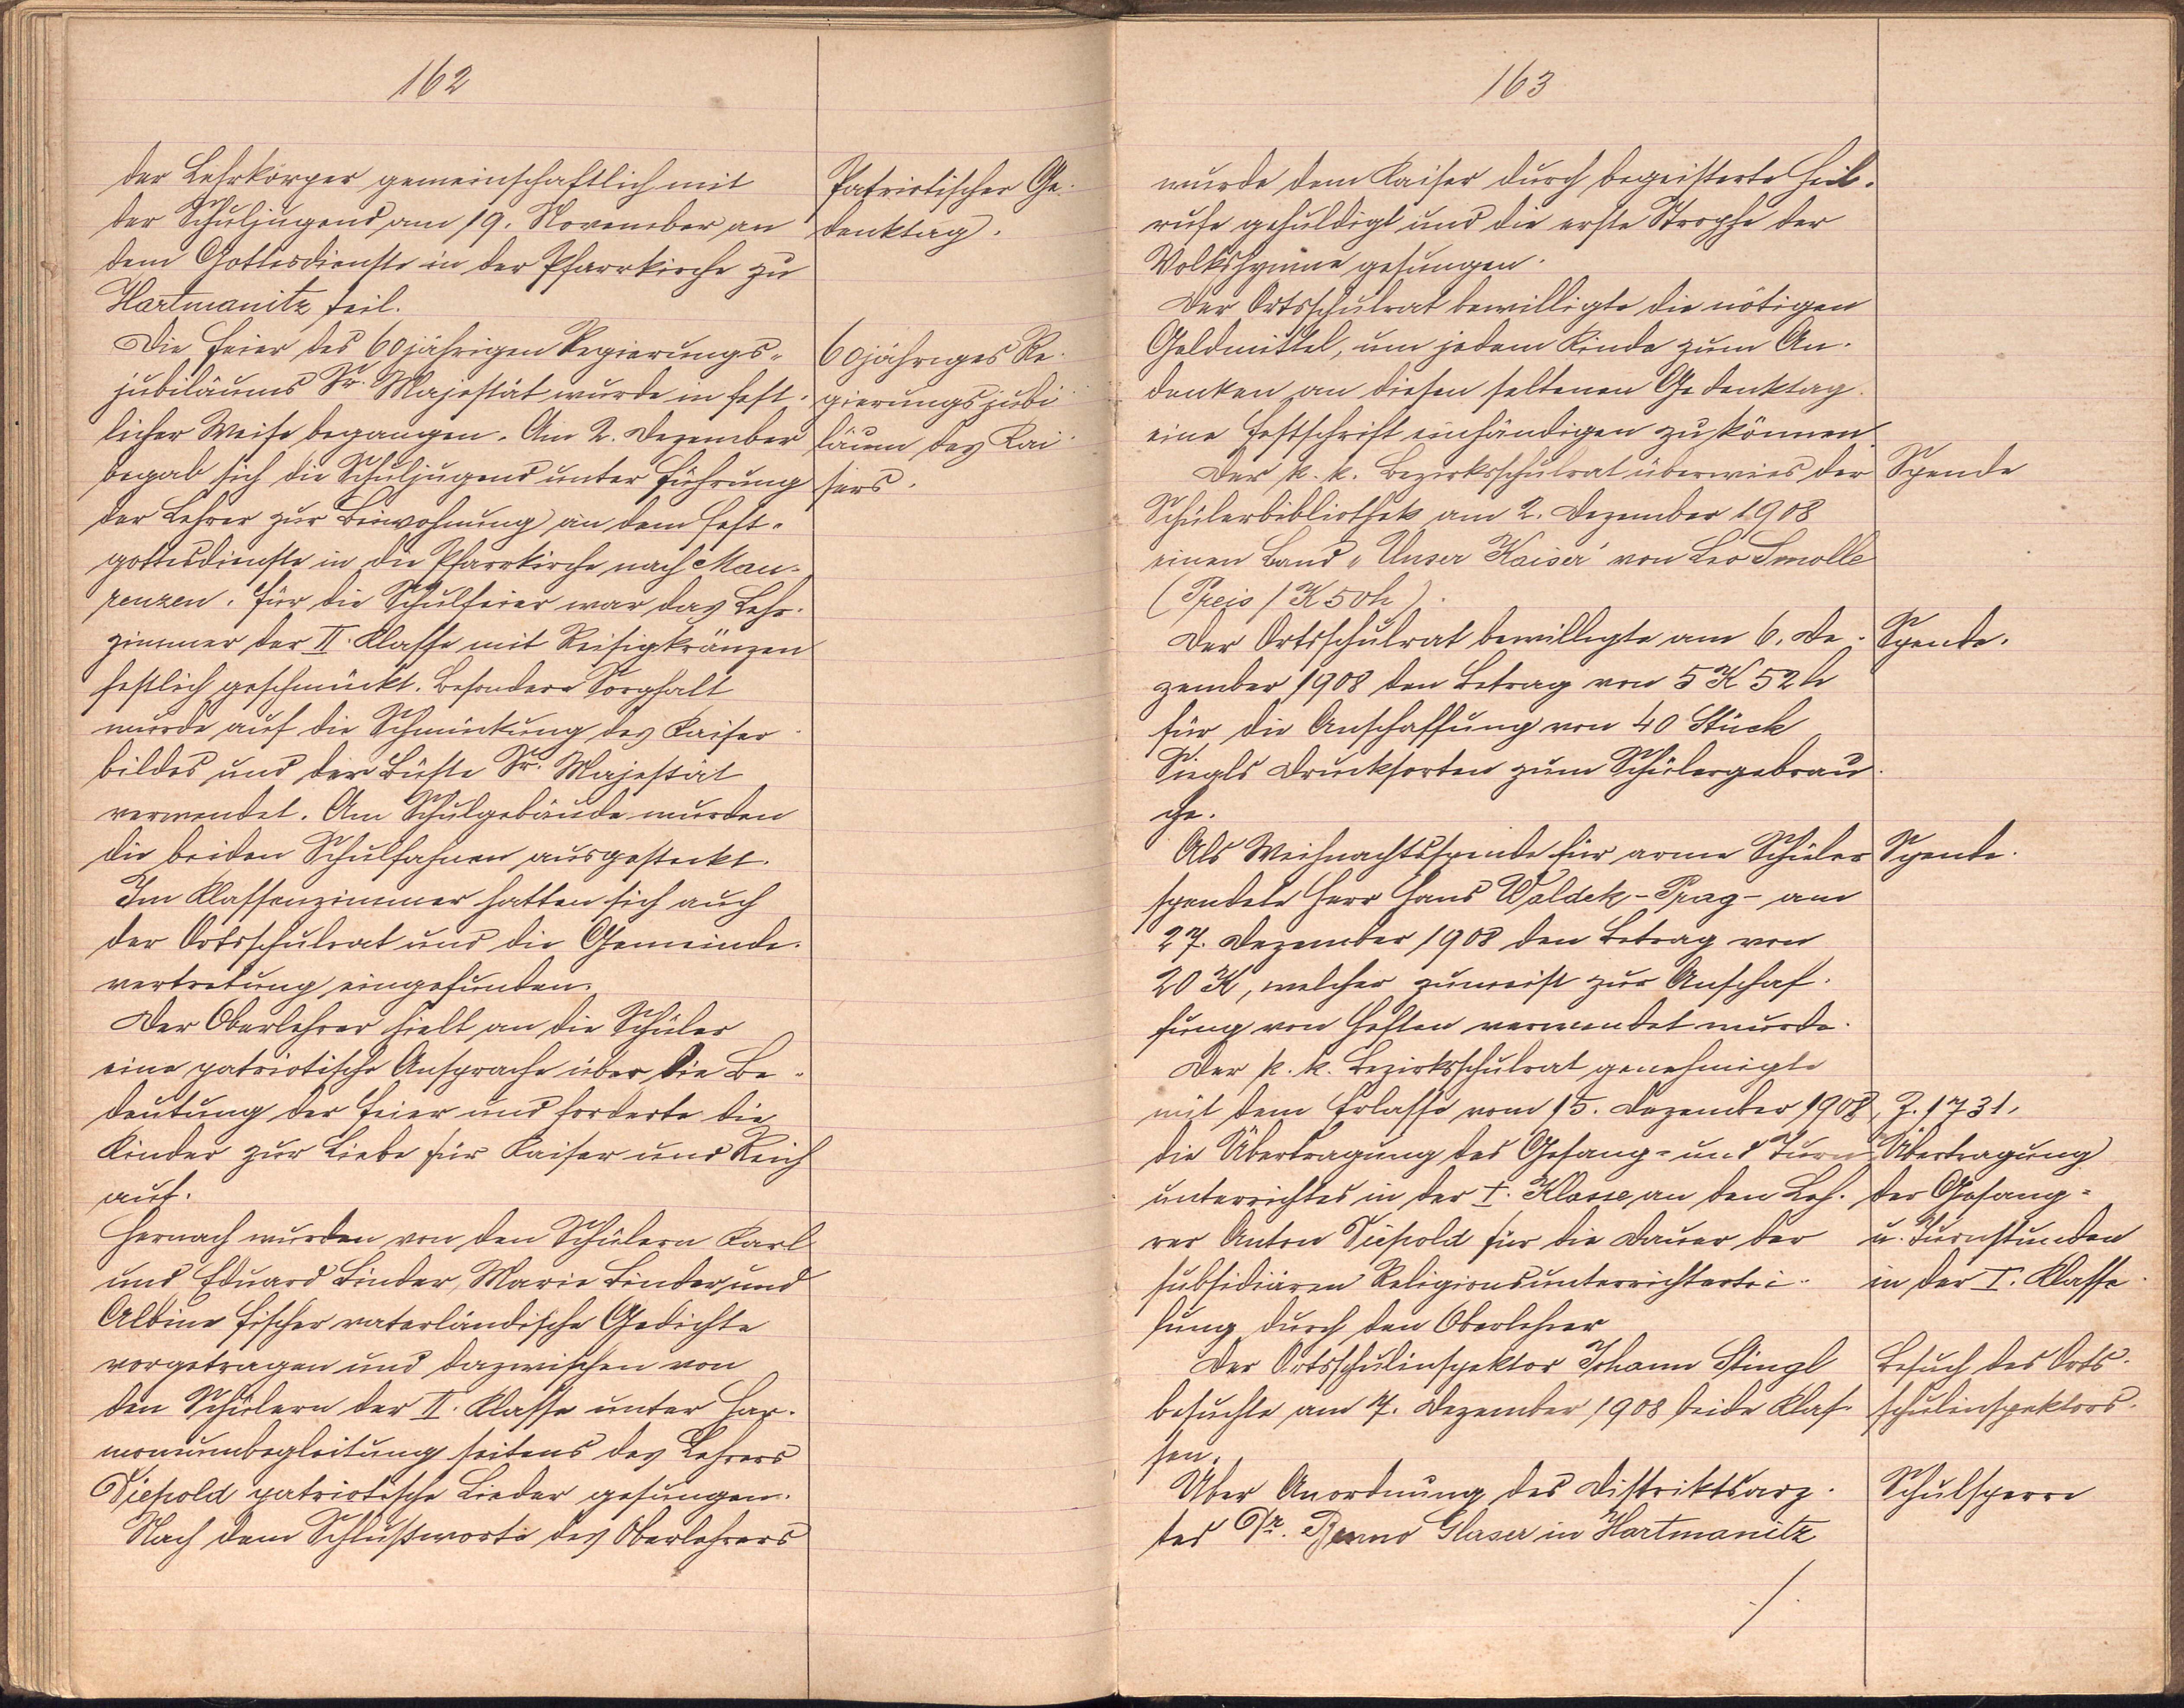 162
der Lehrkörper gemeinschaftlich mit
der Schuljugend am 19. November an
dem Gottesdienste in der Pfarrkirche zu
Hartmanitz teil.
Die Feier des 60jährigen Regierungs-
jubiläums Sr. Majestät wurde in fest-
licher Weise begangen. Am 2. Dezember
begab sich die Schuljugend unter Führung
der Lehrer zur Beiwohnung an dem Fest-
gottesdienste in die Pfarrkirche nach Mau-
renzen. Für die Schulfeier war das Lehr-
zimmer der II. Klasse mit Reisigkränzen
festlich geschmückt. Besondere Sorgfalt
wurde auf die Schmückung des Kaiser-
bildes und der Büste Sr. Majestät
verwendet. Am Schulgebäude wurden
die beiden Schulfahnen ausgesteckt.
Im Klassenzimmer hatten sich auch
der Ortsschulrat und die Gemeinde-
vertretung eingefunden.
Der Oberlehrer hielt an die Schüler
eine patriotische Ansprache über die Be-
deutung der Feier und forderte die
Kinder zur Liebe für Kaiser und Reich
auf.
Hernach wurden von den Schülern Karl
und Eduard Binder, Marie Binder und
Albine Fischer vaterländische Gedichte
vorgetragen und dazwischen von
den Schülern der II. Klasse unter Har-
moniumbegleitung seitens des Lehrers
Diepold patriotische Lieder gesungen.
Nach dem Schlußworte des Oberlehrers
Patriotischer Ge-
denktag.
60jähriges Re-
gierungsjubi-
läum des Kai-
sers.
163
wurde dem Kaiser durch begeisterte Heil-
rufe gehuldigt und die erste Strophe der
Volkshymne gesungen.
Der Ortsschulrat bewilligte die nötigen
Geldmittel, um jedem Kinde zum An-
denken an diesen seltenen Gedenktag
eine Festschrift einhändigen zu können.
Der k. k. Bezirksschulrat überwies der
Schülerbibliothek am 2. Dezember 1908
einen Band „Unser Kaiser" von Leo Smolle
(Preis 1 K 50 h).
Der Ortsschulrat bewilligte am 6. De-
zember 1908 den Betrag von 5 K 52 h
für die Anschaffung von 40 Stück
Siegls Drucksorten zum Schülergebrau-
che.
Als Weihnachtsspende für arme Schüler
spendete Herr Hans Waldek - Prag - am
27. Dezember 1908 den Betrag von
20 K, welcher zumeist zur Anschaf-
fung von Heften verwendet wurde.
Der k. k. Bezirksschulrat genehmigte
mit dem Erlasse vom 15. Dezember 1908, Z. 1731,
die Übertragung des Gesang- und Turn-
unterrichtes in der I. Klasse an den Leh-
rer Anton Diepold für die Dauer der
subsidiären Religionsunterrichtertei-
lung durch den Oberlehrer
Der Ortsschulinspektor Johann Stingl
besuchte am 7. Dezember 1908 beide Klas-
sen.
Über Anordnung des Distriktsarz-
tes Dr. Benno Glaser in Hartmanitz
./.
Spende
Spende.
Spende.
Übertragung
der Gesang-
u. Turnstunden
in der I. Klasse.
Besuch des Orts-
schulinspektors.
Schulsperre